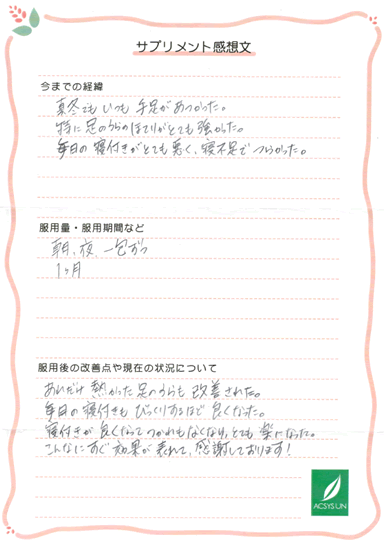 サプリメント感想文
今までの経緯
真冬でもいつも手足があつかった。
特に足のうらのほてりがとても強かった。
毎日の寝付きがとても悪く、寝不足でつらかった。
服用量・服用期間など
朝、夜、一包ずつ
1ヶ月
服用後の改善点や現在の状況について
あれだけ熱かった足のうらも改善された。
毎日の寝付きもびっくりするほど良くなった。
寝付きが良くなってつかれもなくなり、とても楽になった。
こんなにすぐ効果が表れて、感謝しております!
ACSYS LIN